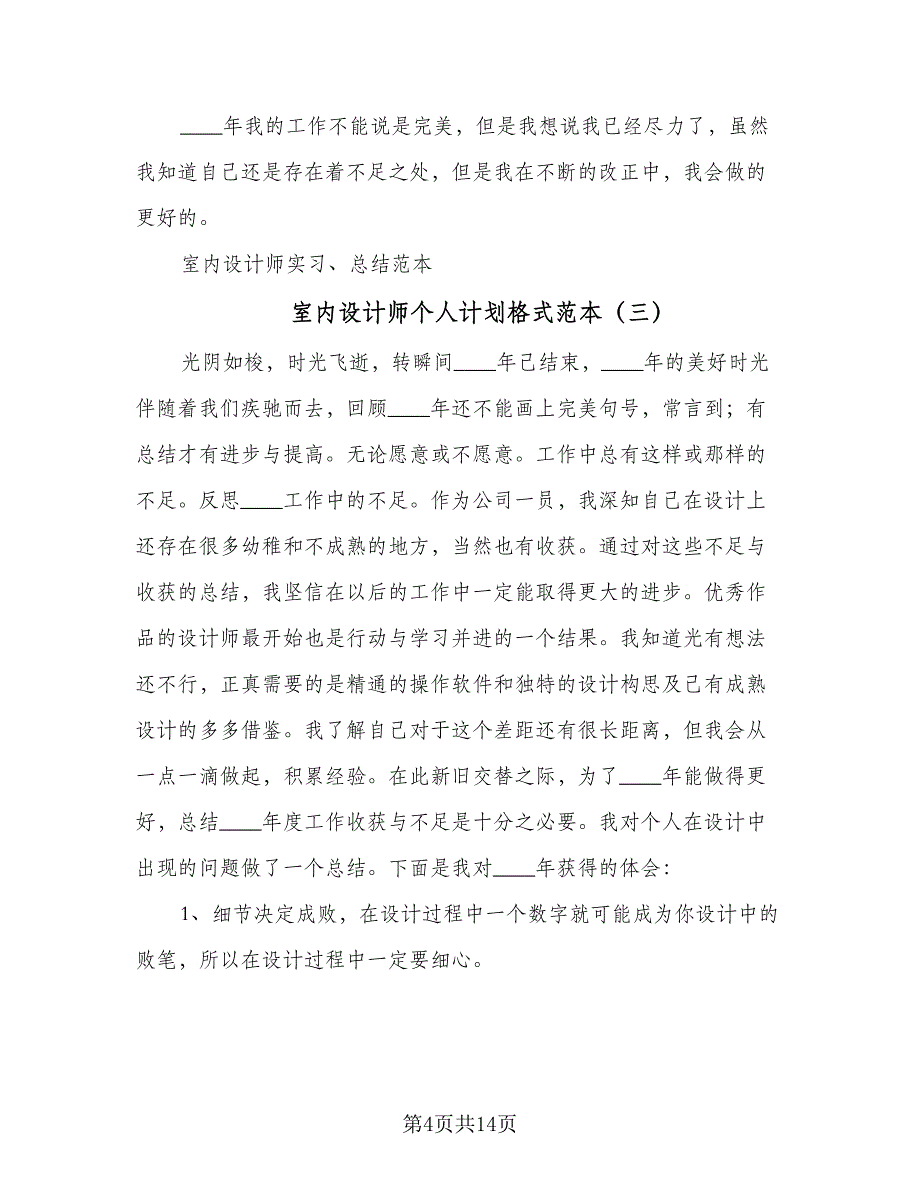 ____年我的工作不能说是完美，但是我想说我已经尽力了，虽然
我知道自己还是存在着不足之处，但是我在不断的改正中，我会做的
更好的。
室内设计师实习、总结范本
室内设计师个人计划格式范本（三）
光阴如梭，时光飞逝，转瞬间____年己结束，____年的美好时光
伴随着我们疾驰而去，回顾____年还不能画上完美句号，常言到；有
总结才有进步与提高。无论愿意或不愿意。工作中总有这样或那样的
不足。反思____工作中的不足。作为公司一员，我深知自己在设计上
还存在很多幼稚和不成熟的地方，当然也有收获。通过对这些不足与
收获的总结，我坚信在以后的工作中一定能取得更大的进步。优秀作
品的设计师最开始也是行动与学习并进的一个结果。我知道光有想法
还不行，正真需要的是精通的操作软件和独特的设计构思及己有成熟
设计的多多借鉴。我了解自己对于这个差距还有很长距离，但我会从
一点一滴做起，积累经验。在此新旧交替之际，为了____年能做得更
好，总结____年度工作收获与不足是十分之必要。我对个人在设计中
出现的问题做了一个总结。下面是我对____年获得的体会：
1、细节决定成败，在设计过程中一个数字就可能成为你设计中的
败笔，所以在设计过程中一定要细心。
第4页共14页